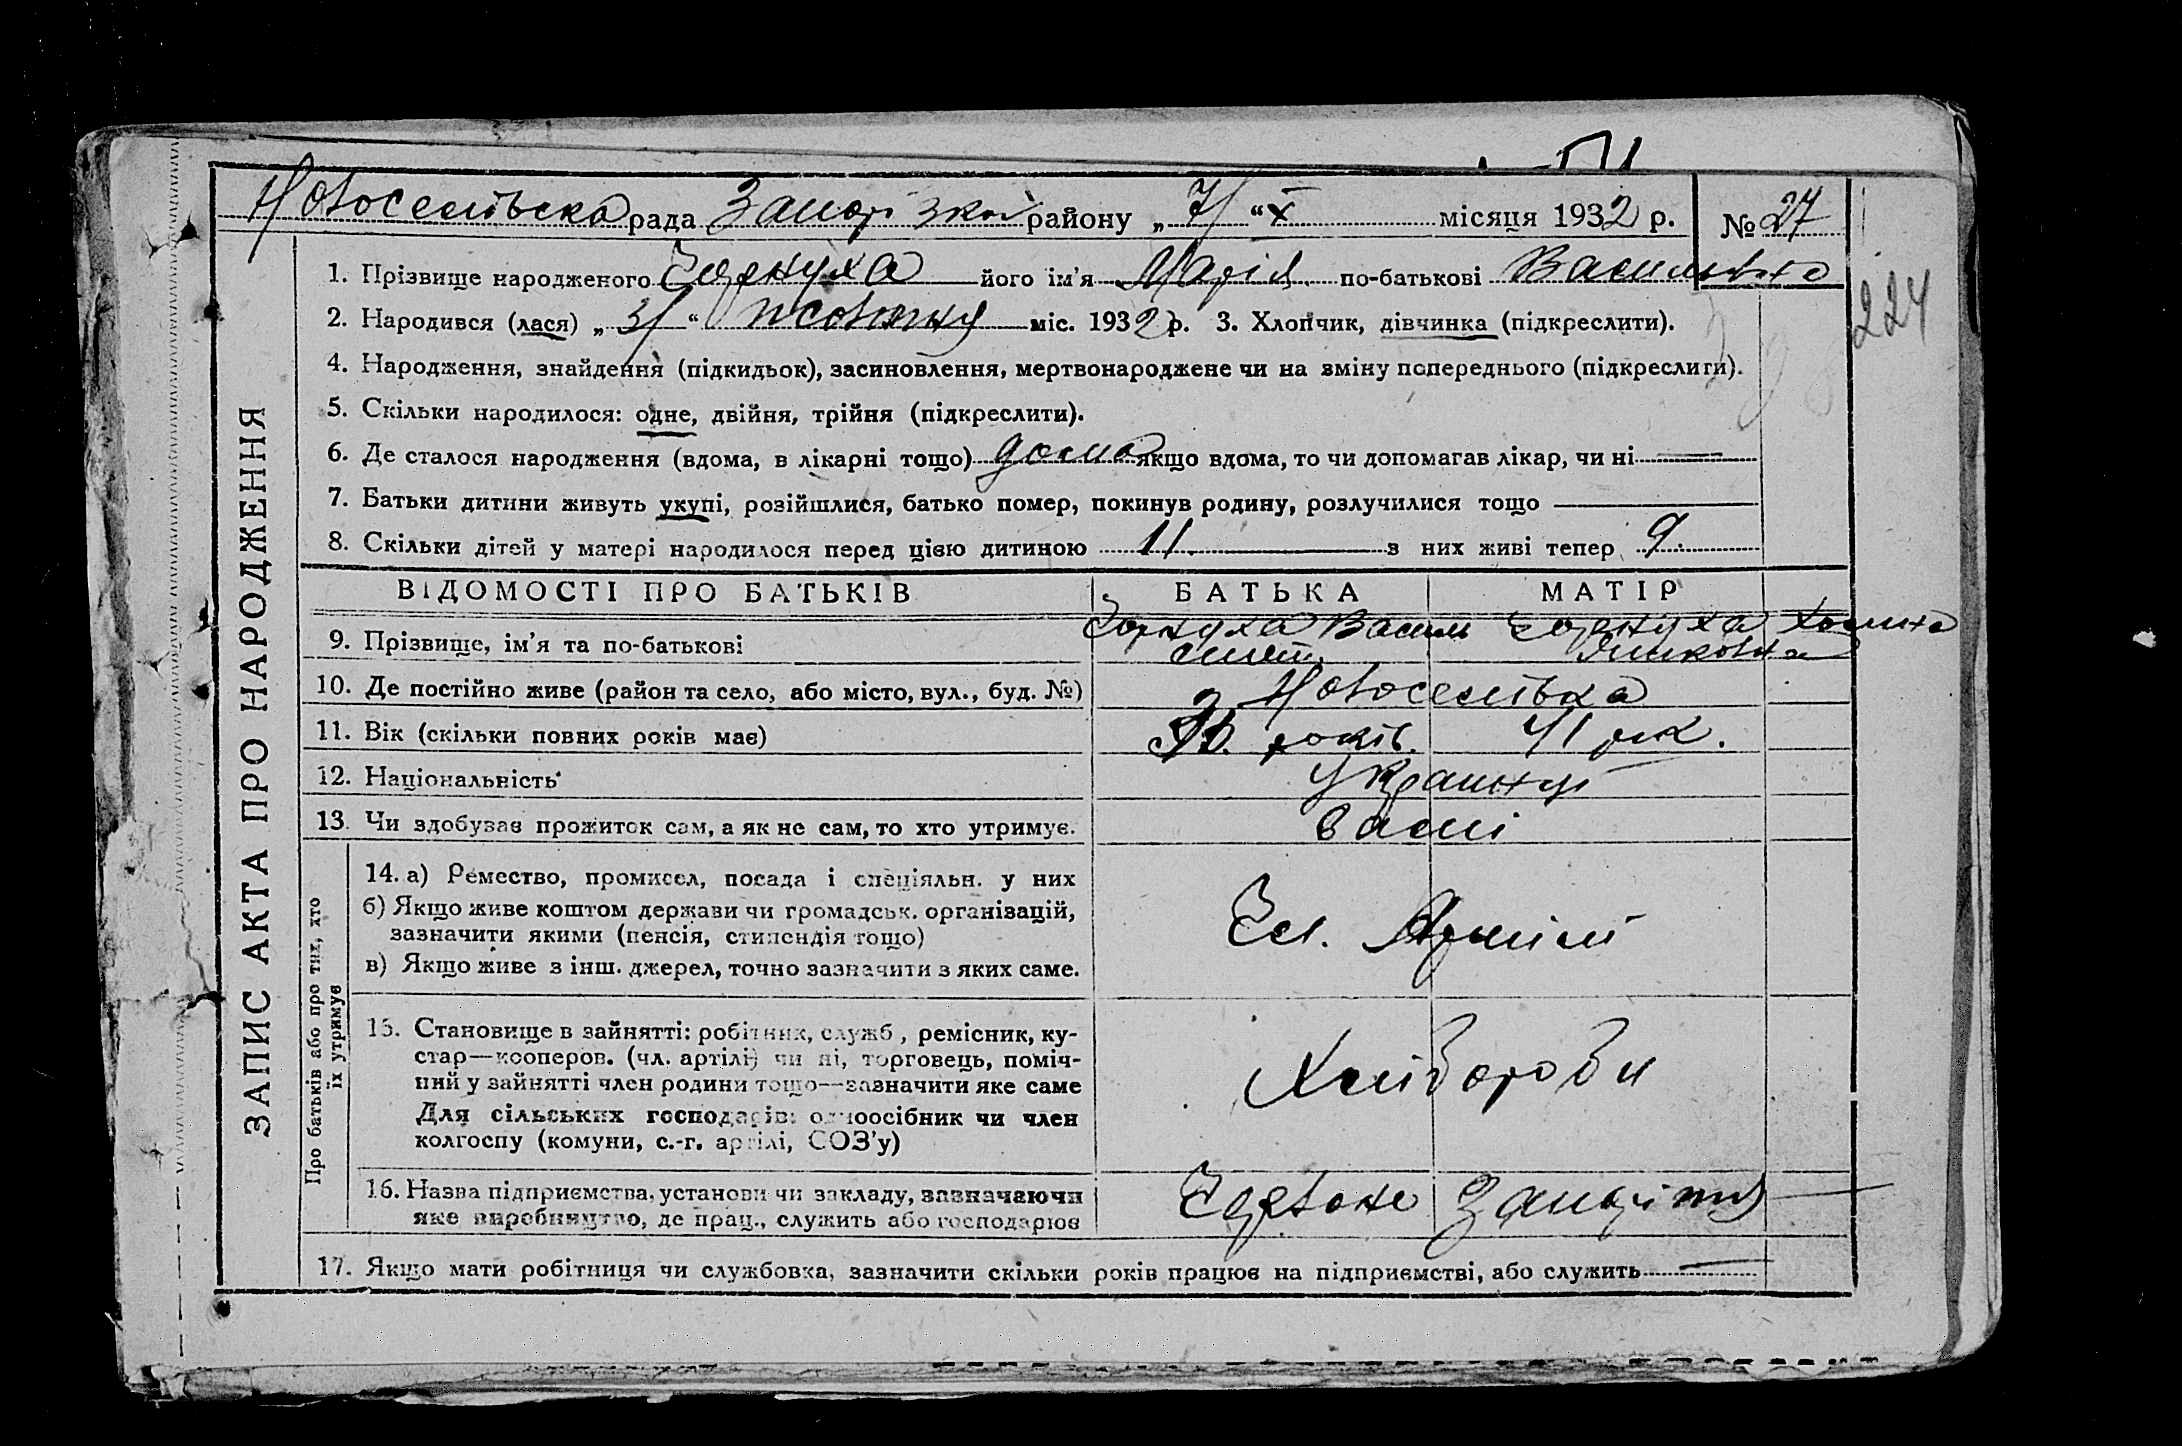 Новоселівська рада Запорізкого району „7" X місяця 1932 р. № 27
1. Прізвище народженого Чорнуха його ім'я Марія по-батькові Василівна
2. Народився (лася) „3" жовтня міс. 1932 р. 3. Хлопчик, дівчинка (підкреслити).
224
4. Народження, знайдення (підкидьок), засиновлення, мертвонароджене чи на зміну попереднього (підкреслити).
5. Скільки народилося: одне, двійня, трійня (підкреслити).
6. Де сталося народження (вдома, в лікарні тощо) дома якщо вдома, то чи допомагав лікар, чи ні —
7. Батьки дитини живуть укупі, розійшлися, батько помер, покинув родину, розлучилися тощо —
8. Скільки дітей у матері народилося перед цією дитиною 11. з них живі тепер 9.
ЗАПИС АКТА ПРО НАРОДЖЕННЯ
ВІДОМОСТІ ПРО БАТЬКІВ БАТЬКА МАТІР
9. Прізвище, ім'я та по-батькові Чорнуха Василь Чорнуха
10. Де постійно живе (район та село, або місто, вул., буд. №) Новоселівка
11. Вік (скільки повних років має) років. 41 рік.
12. Національність Українці
13. Чи здобуває прожиток сам, а як не сам, то хто утримує. Самі
Про батьків або про тих, хто
їх утримує
14. а) Ремество, промисел, посада і спеціяльн. у них
б) Якщо живе коштом держави чи громадськ. організацій,
зазначити якими (пенсія, стипендія тощо)
в) Якщо живе з інш. джерел, точно зазначити з яких саме.
Чл. Артілі
15. Становище в зайнятті: робітник, служб, ремісник, ку-
стар—кооперов. (чл. артілі) чи ні, торговець, поміч-
ний у зайнятті член родини тощо—зазначити яке саме
Для сільських господарів: одноосібник чи член
колгоспу (комуни, с.-г. артілі, СОЗ'у)
Хлібороби
16. Назва підприємства, установи чи закладу, зазначаючи
яке виробництво, де прац., служить або господарює
Червоне Запоріжжя —
17. Якщо мати робітниця чи службовка, зазначити скільки років працює на підприємстві, або служить —